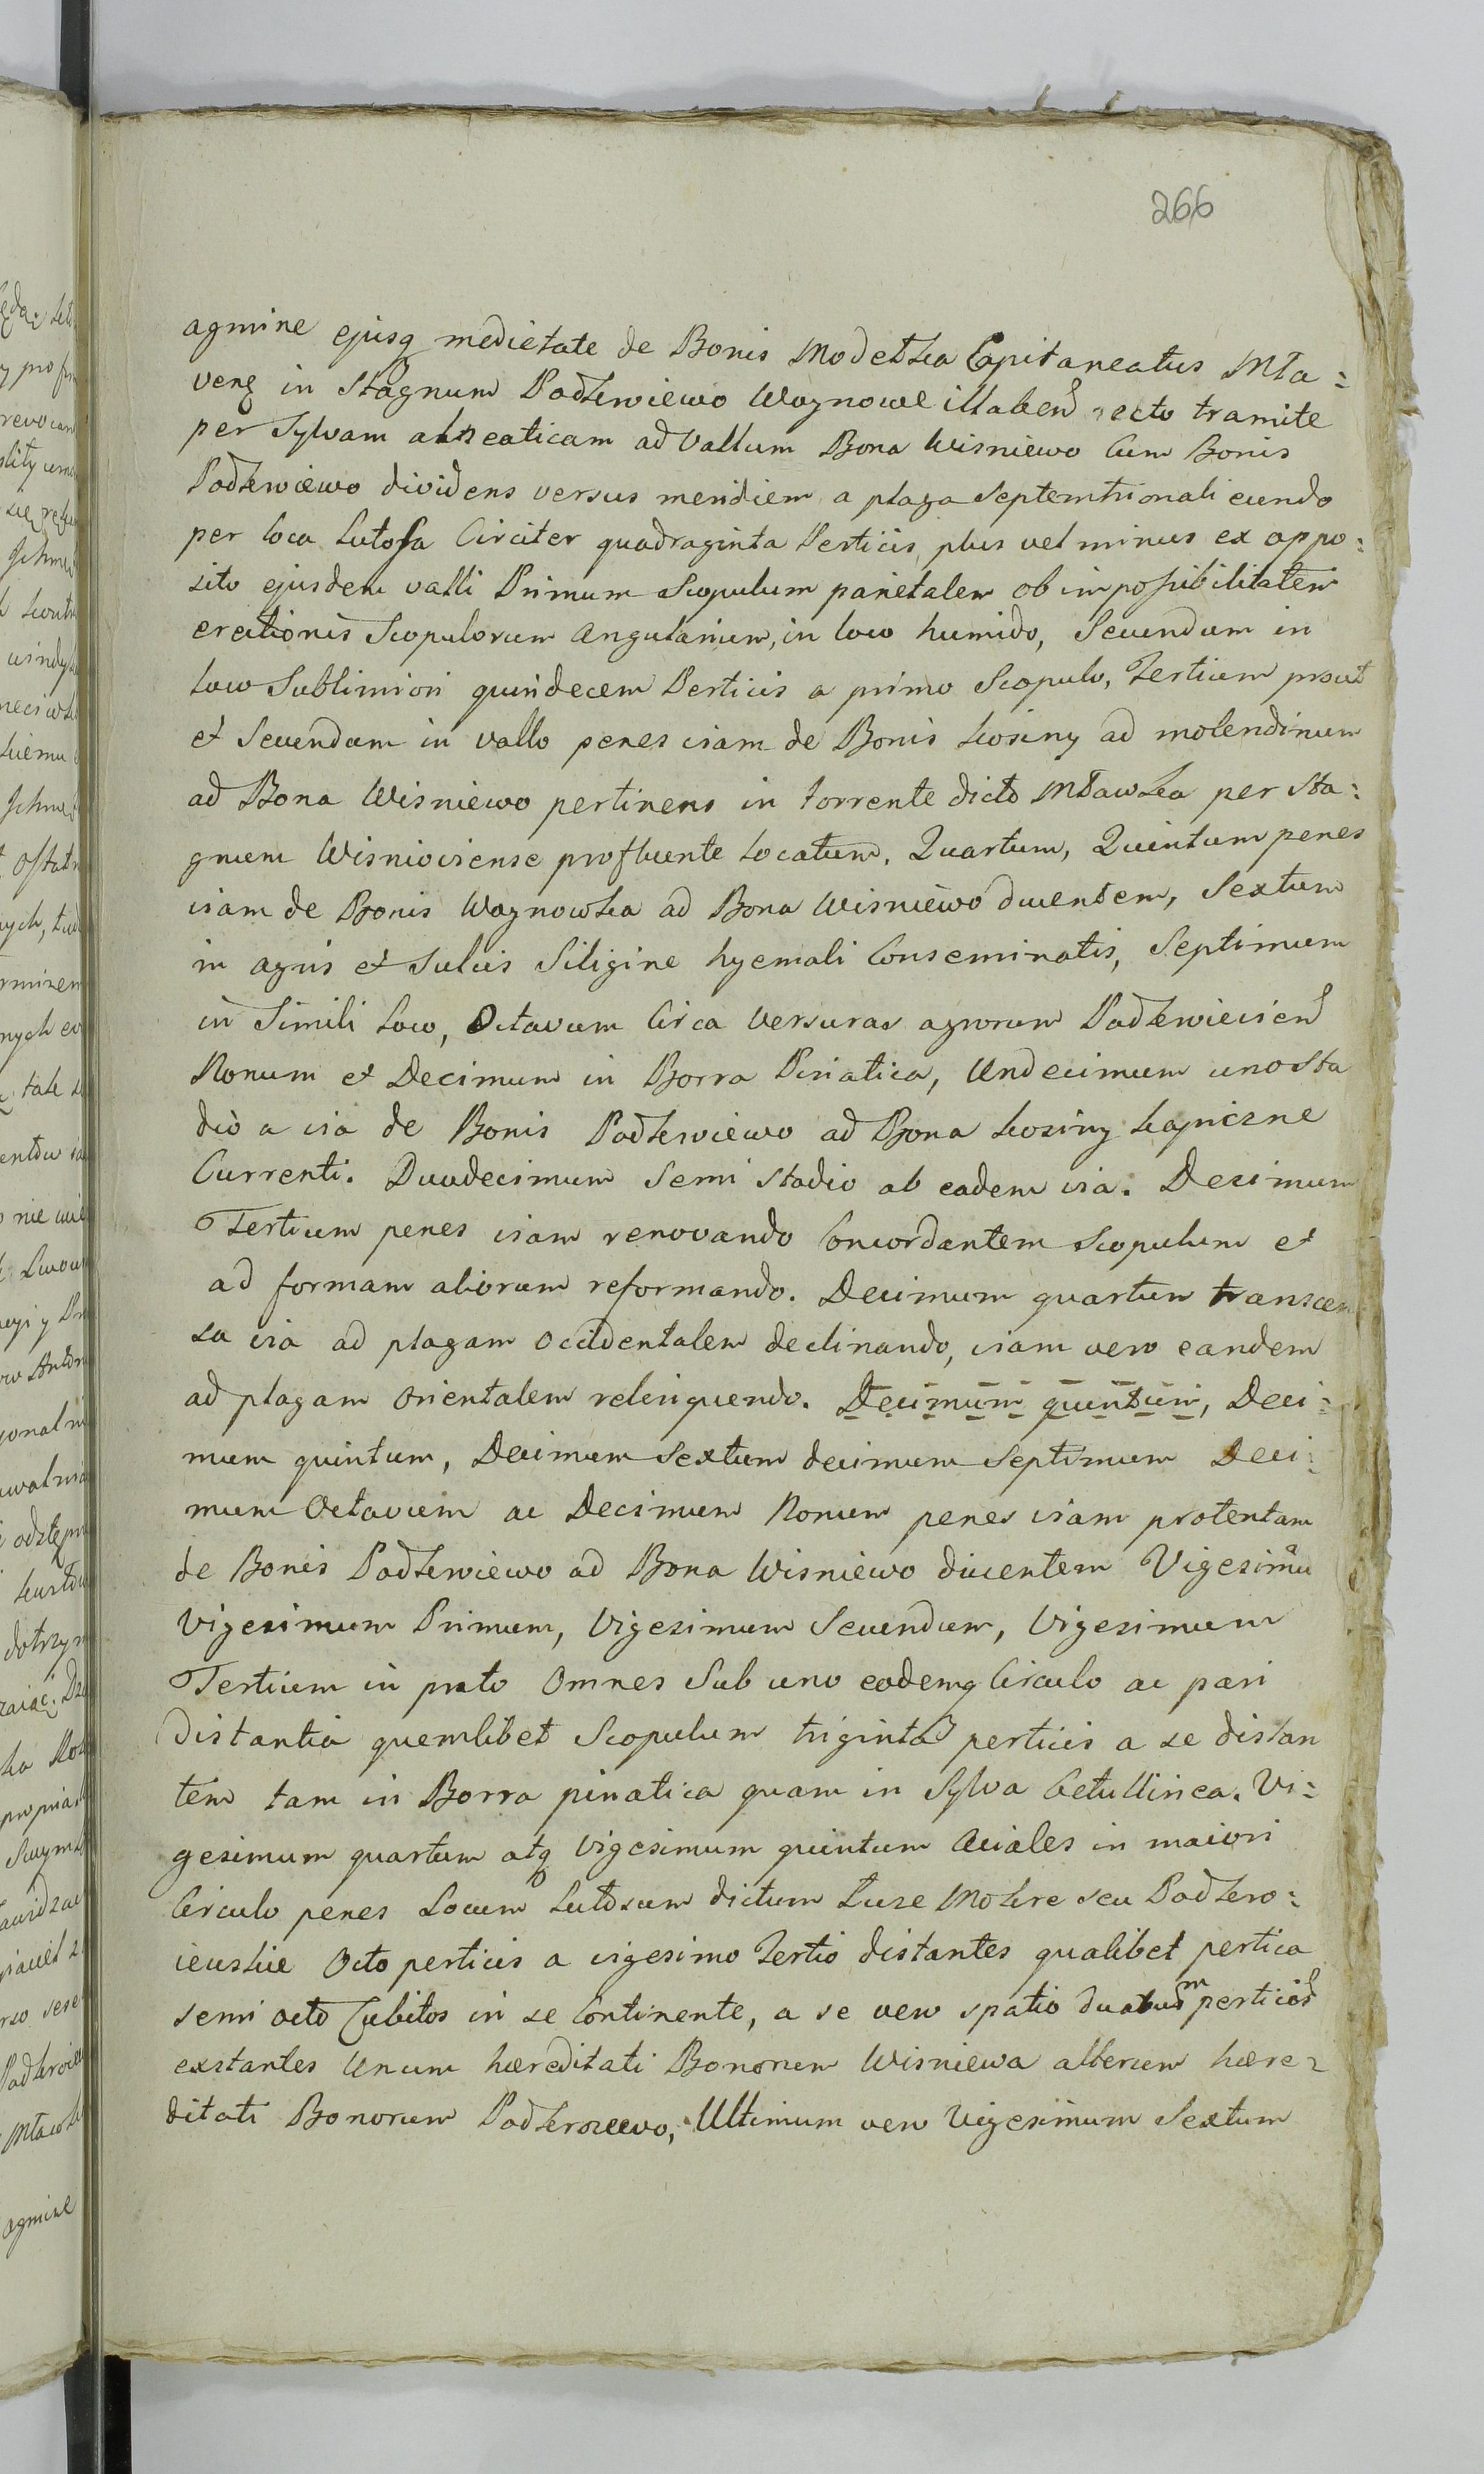 266
agmine ejusq medietate de Bonis Modetka Capitaneatus Mła:
veng in Stagnum Podkrwiewo Waynowe illabend recto tramite
per Sylvam alneaticam ad Vallum Bona Wisniewo Cum Bonis
Podkrwiewo dividens versus meridiem a plaga Septemtrionali eundo
per loca Lutosa Circiter quadraginta Perticis plus vel minus ex oppo:
sito ejusdem valli Primum Scopulum parietalem ob impossibilitatem
erectionis Scopulorum Angularium, in loco humido, Secundum in
loco Sublimiori quindecem Perticis a primo Scopulo, Tertium prout
et Secundum in vallo penes viam de Bonis Kosiny ad molendinum
ad Bona Wisniewo pertinens in torrente dicto Mławka per Sta:
gnum Wisnioviense profluente locatum, Quartum, Quintum penes
viam de Bonis Waynowka ad Bona Wisniewo ducentem, Sextum
in agris et sulcis Siligine hyemali Conseminatis, Septimum
in Simili loco, Octavum Circa Versuras agrorum Podkrwievien
Nonum et Decimum in Borra Piniatica, Undecimum uno Sta
dio a via de Bonis Podkrwiewo ad Bona Kosiny Kapiczne
Currenti. Duodecimum Semi Stadio ab eadem via. Decimum
Tertium penes viam renovando Concordantem Scopulum et
ad formam aliorum reformando. Decimum quartum transcen
sa via ad plagam Occidentalem declinando, viam vero eandem
ad plagam Orientalem relinquendo. Decimum quintum, Deci:
mum quintum, Decimum Sextum decimum Septimum Deci:
mum Octavum ac Decimum Nonum penes viam protentam
de Bonis Podkrwiewo ad Bona Wisniewo ducentem Vigesimu
Vigesimum Primum, Vigesimum Secundum, Vigesimum
Tertium in prato Omnes Sub uno eodemq Circulo ac pari
distantia quemlibet Scopulum triginta perticis a se distan
tem tam in Borra pinatica quam in Sylva Betullinea. Vi:
gesimum quartum atq Vigesimum quintum Aciales in maiori
Circulo penes Locum Lutosum dictum Łuze Mokre seu Podkrw:
ieuskie Octo perticis a vigesimo Tertio distantes qualibet pertica
semi octo Cubitos in se Continente, a se vero spatio duabus perticis
exstantes Unum hæreditati Bonorum Wisniewa alterum hære:
ditati Bonorum Podkrwiewo, Ultimum vero Vigesimum Sextum